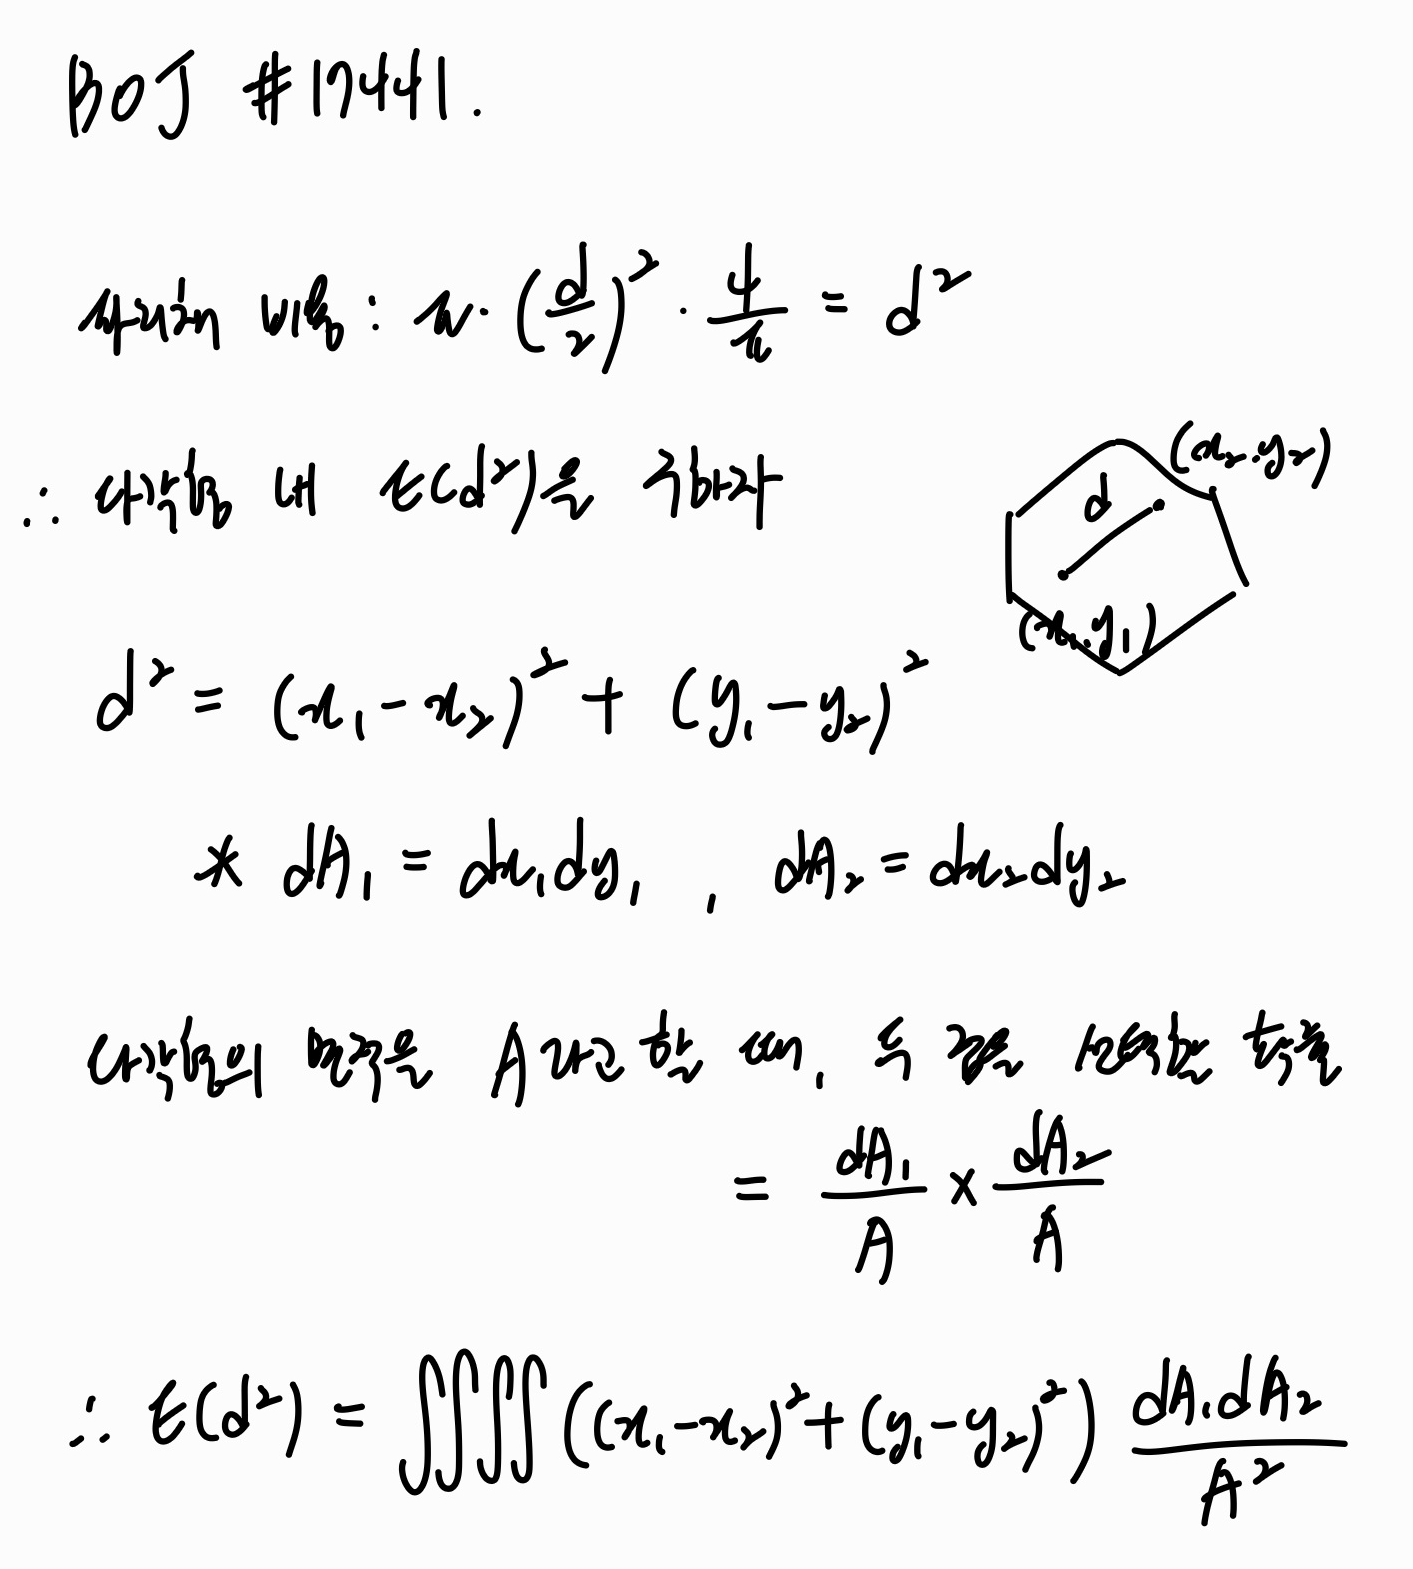 BOJ #17441.
사리환 비용 : π · (d/2)² · 4/π = d²
∴ 다각형 내 E(d²)을 구하자
d
(x₂, y₂)
(x₁, y₁)
d² = (x₁ - x₂)² + (y₁ - y₂)²
* dA₁ = dx₁dy₁ , dA₂ = dx₂dy₂
다각형의 면적을 A라고 할 때, 두 점을 선택할 확률
= dA₁/A × dA₂/A
∴ E(d²) = ∫∫∫∫ ((x₁-x₂)² + (y₁-y₂)²) dA₁dA₂/A²